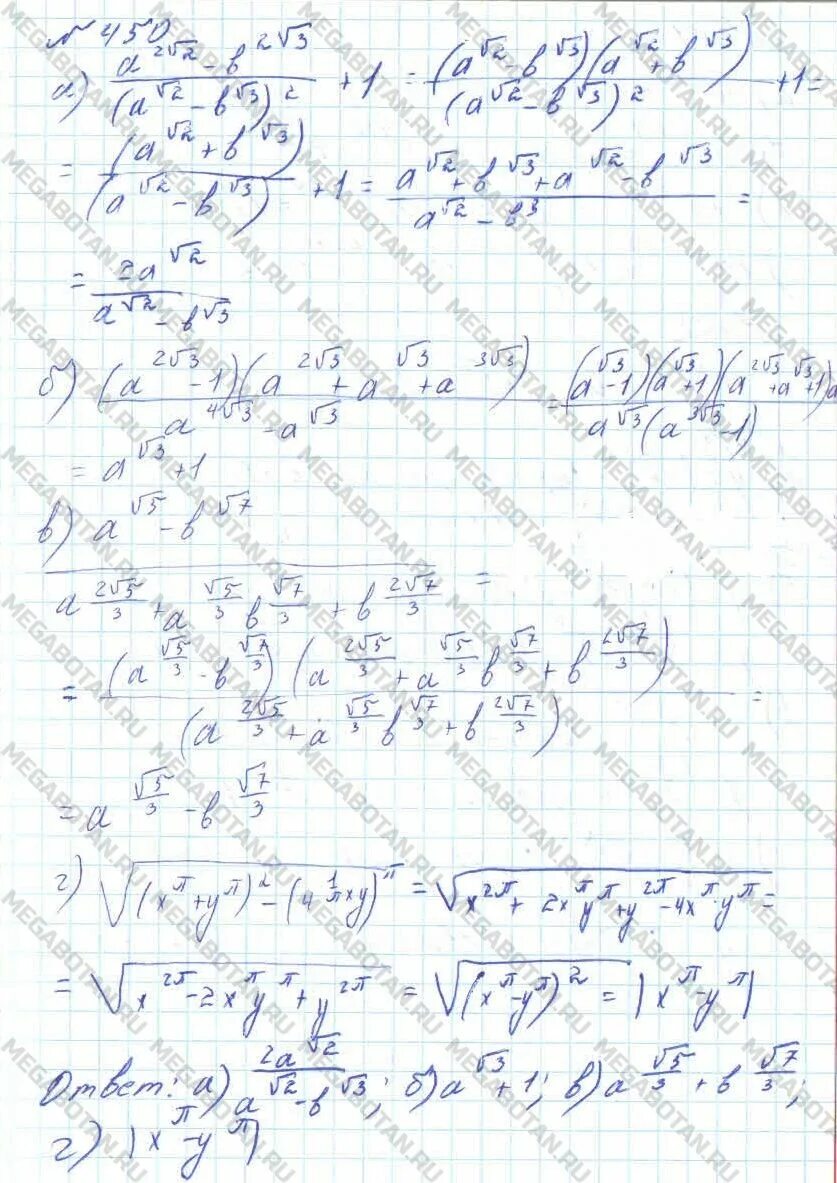 № 450
а) (a^(2√2) - b^(2√3)) / (a^(√2) - b^(√3))^2 + 1 = ((a^(√2) - b^(√3))(a^(√2) + b^(√3))) / (a^(√2) - b^(√3))^2 + 1 =
= (a^(√2) + b^(√3)) / (a^(√2) - b^(√3)) + 1 = (a^(√2) + b^(√3) + a^(√2) - b^(√3)) / (a^(√2) - b^3) =
= 2a^(√2) / (a^(√2) - b^(√3))
б) ((a^(2√3) - 1)(a^(2√3) + a^(√3) + a^(3√3))) / (a^(4√3) - a^(√3)) = ((a^(√3) - 1)(a^(√3) + 1)(a^(2√3) + a^(√3) + 1)a / (a^(√3)(a^(3√3) - 1))
= a^(√3) + 1
в) (a^(√5) - b^(√7)) / (a^(2√5/3) + a^(√5/3) b^(√7/3) + b^(2√7/3)) =
= ((a^(√5/3) - b^(√7/3)) (a^(2√5/3) + a^(√5/3) b^(√7/3) + b^(2√7/3))) / (a^(2√5/3) + a^(√5/3) b^(√7/3) + b^(2√7/3)) =
= a^(√5/3) - b^(√7/3)
г) √((x^π + y^π)^2 - (4^(1/π) xy)^π) = √(x^(2π) + 2x^π y^π + y^(2π) - 4x^π y^π) =
= √(x^(2π) - 2x^π y^π + y^(2π)) = √((x^π - y^π)^2) = |x^π - y^π|
Ответ: а) 2a^(√2) / (a^(√2) - b^(√3)); б) a^(√3) + 1; в) a^(√5/3) + b^(√7/3);
г) |x^π - y^π|
MEGABOTAN.RU